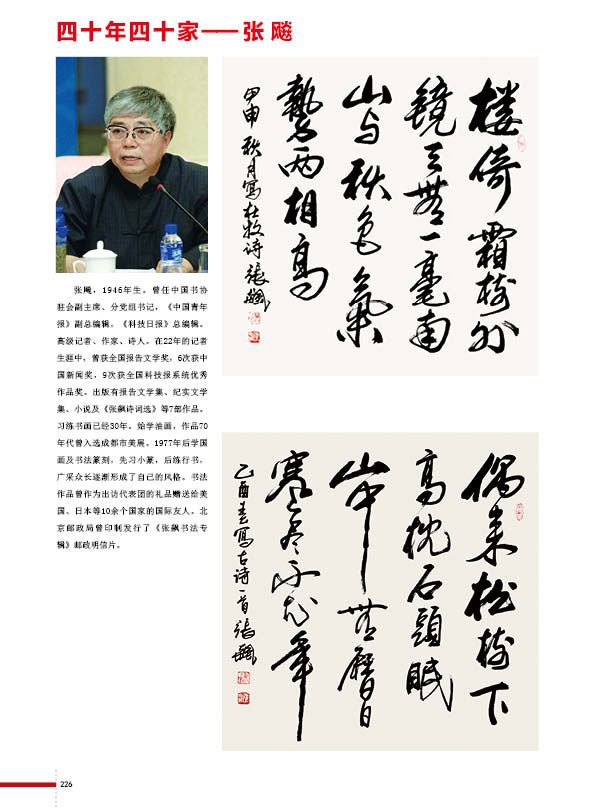 四十年四十家——张 飚
楼倚霜樹外
镜天無一毫南
山与秋色氣
勢两相高
甲申秋月写杜牧诗張飈
张飚，1946年生。曾任中国书协
驻会副主席、分党组书记，《中国青年
报》副总编辑，《科技日报》总编辑。
高级记者、作家、诗人。在22年的记者
生涯中，曾获全国报告文学奖，6次获中
国新闻奖，9次获全国科技报系统优秀
作品奖。出版有报告文学集、纪实文学
集、小说及《张飙诗词选》等7部作品。
习练书画已经30年。始学油画，作品70
年代曾入选成都市美展。1977年后学国
画及书法篆刻，先习小篆，后练行书，
广采众长逐渐形成了自己的风格。书法
作品曾作为出访代表团的礼品赠送给美
国、日本等10余个国家的国际友人。北
京邮政局曾印制发行了《张飙书法专
辑》邮政明信片。
偶来松樹下
高枕石頭眠
山中無曆日
寒尽不知年
乙酉春写古诗一首張飈
226